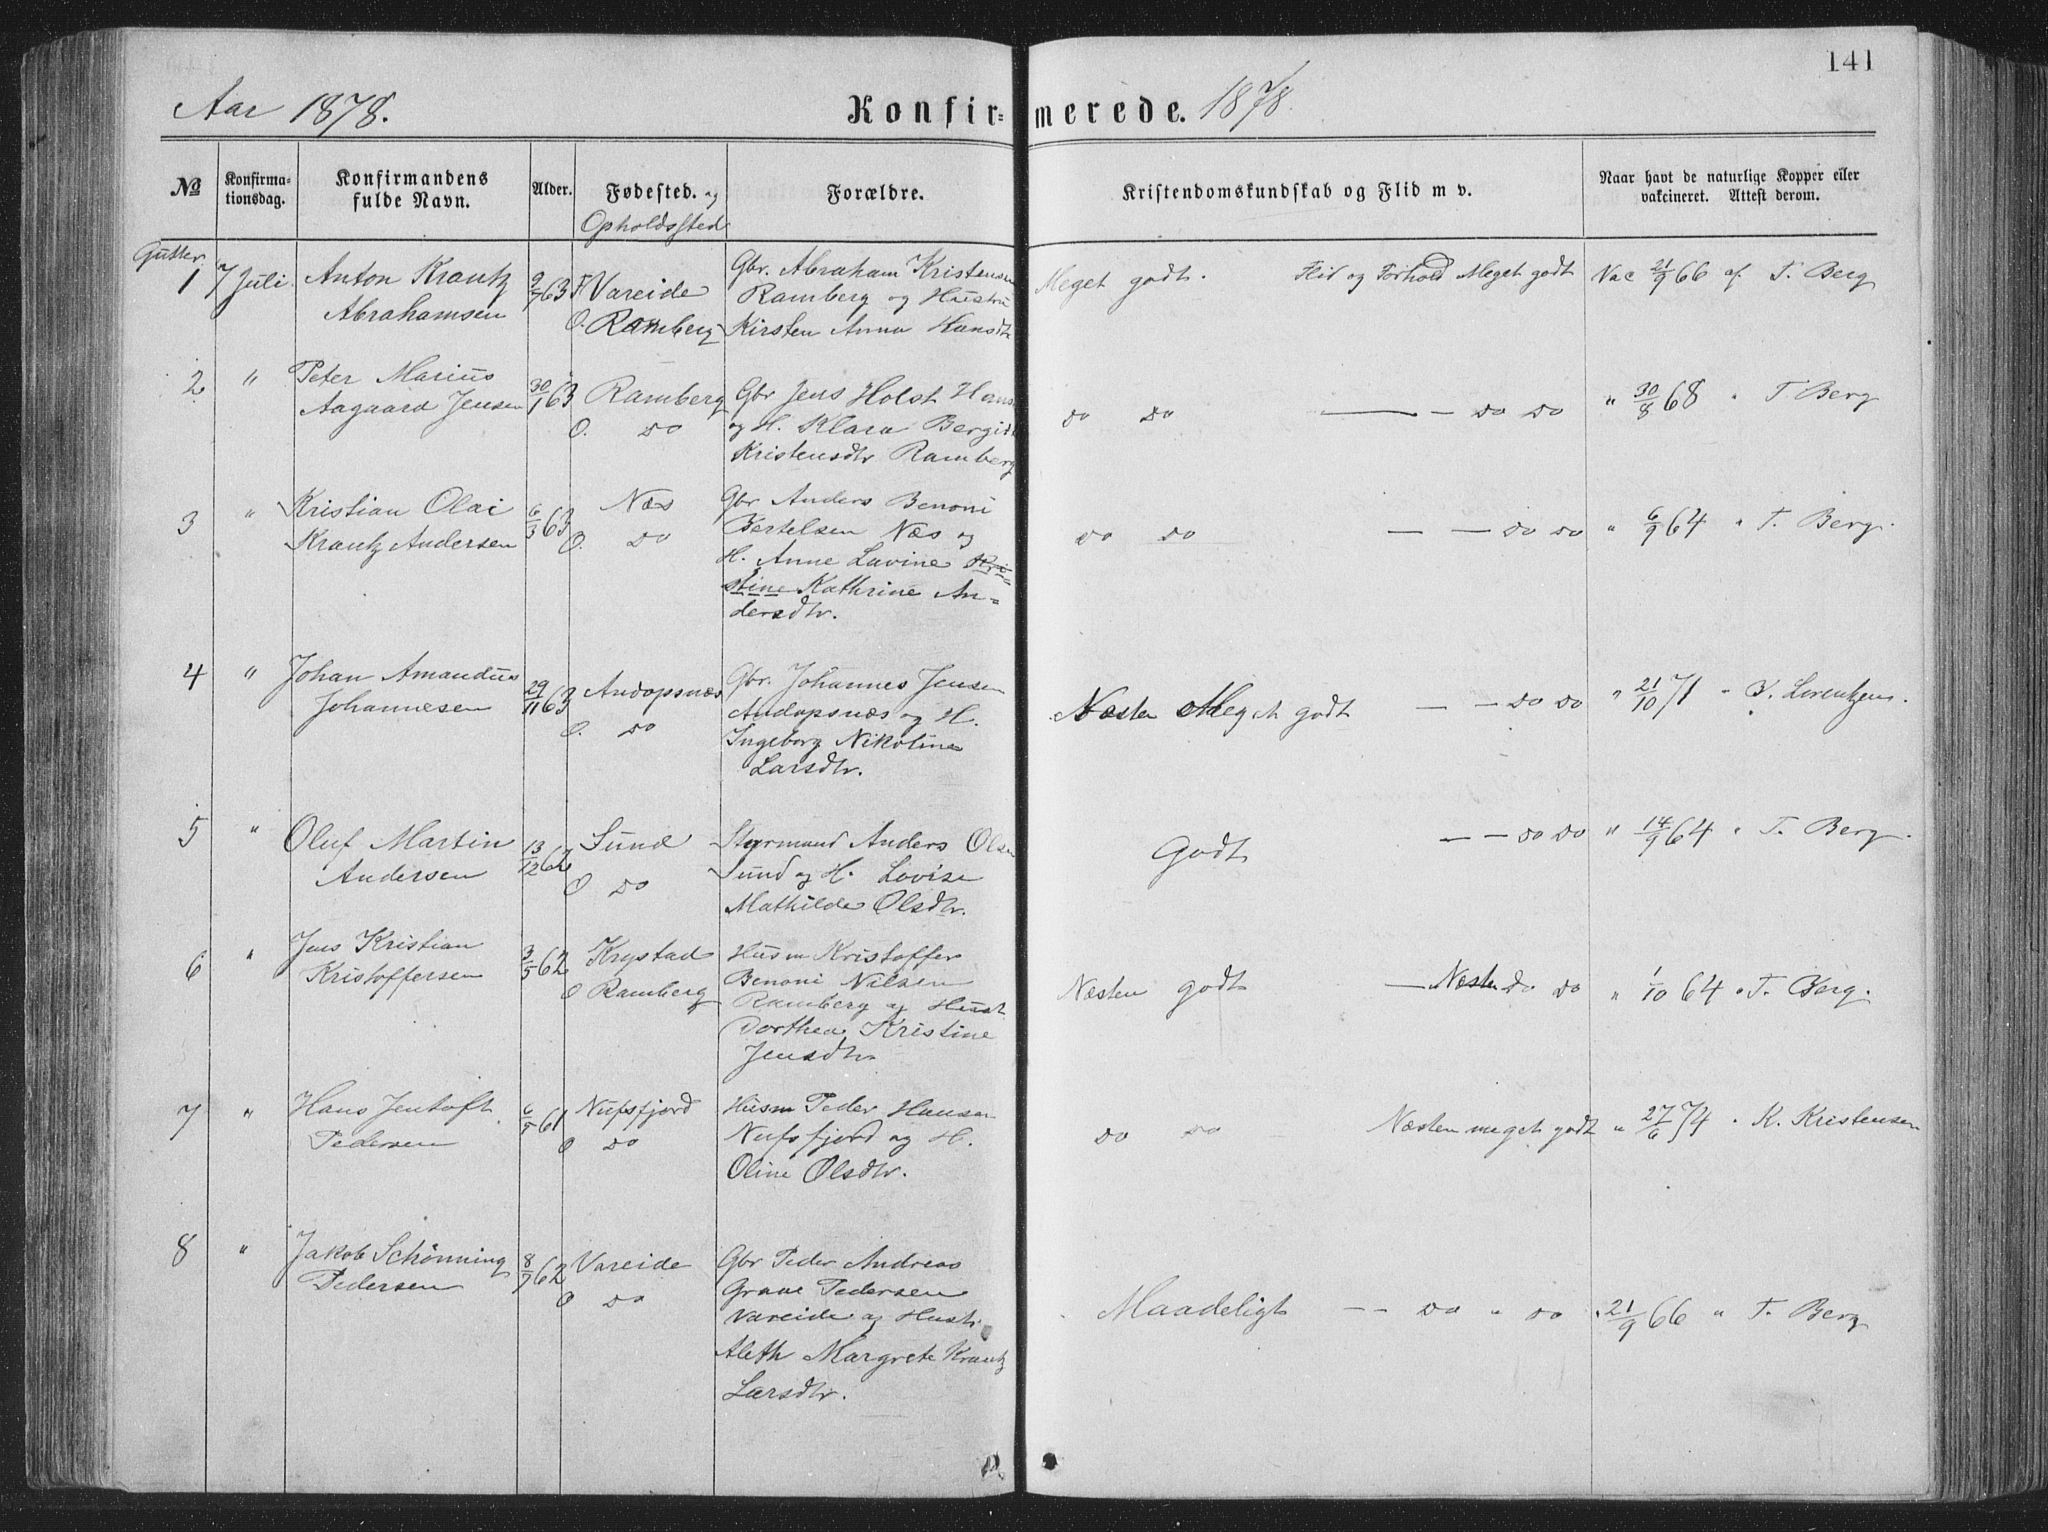 141
Aar 1878. Konfirmerede. 1878.
№ Konfirmationsdag. Konfirmandens fulde Navn. Alder. Fødested. og Opholdssted Forældre. Kristendomskundskab og Flid m v. Naar havt de naturlige Kopper eller vakcineret. Attest derom.
Gutter.
1 7 Juli Anton Krantz 9/7 63 F. Vareide Gbr. Abraham Kristensen Meget godt. Flid og Forhold Meget godt Vac 21/9 66 af T. Berg
Abrahamsen O. Ramberg Ramberg og Hustru
Kirsten Anna Hansdtr
2 " Peter Marius 30/1 63 Ramberg Gbr Jens Holst Hans do do — – do do " 30/8 68 " T Berg
Aagaard Jensen O. do og H. Klara Bergit
Kristensdtr Ramberg
3 " Kristian Olai 6/3 63 Næs Gbr Anders Benoni do do – – do do " 6/9 64 " T. Berg.
Krantz Andersen O. do Bertelsen Næs og
H. Anne Lavine Kri-
stine Kathrine An-
dersdtr.
4 " Johan Amandus 29/11 63 Andopsnæs Gbr. Johannes Jensen Næsten Meget godt – – do do " 21/10 71 " Lorentzen.
Johannesen O. do Andopsnæs og H.
Ingeborg Nikoline
Larsdtr.
5 " Oluf Martin 13/12 62 Sund Styrmand Anders Olsen Godt – – do do " 14/9 64 " T. Berg.
Andersen O do Sund og H. Lovise
Mathilde Olsdtr.
6 " Jens Kristian 3/5 62 Krystad Husm Kristoffer Næsten godt – Næsten do do " 1/10 64 " T. Berg.
Kristoffersen O Ramberg Benoni Nilsen
Ramberg og Hust
Dorthea Kristine
Jensdtr
7 " Hans Jentoft 61 Nufsfjord Husm Peder Hansen do do Næsten meget godt " 27/6 74 " K. Kristensen
Pedersen O do Nufsfjord og H.
Oline Olsdtr.
8 " Jakob Schönning 8/7 62 Vareide Gbr Peder Andreas Maadeligt – – do " do " 21/9 66 " T. Berg
Pedersen O do Grave Pedersen
Vareide og Hustr.
Aleth Margrete Krantz
Larsdtr.